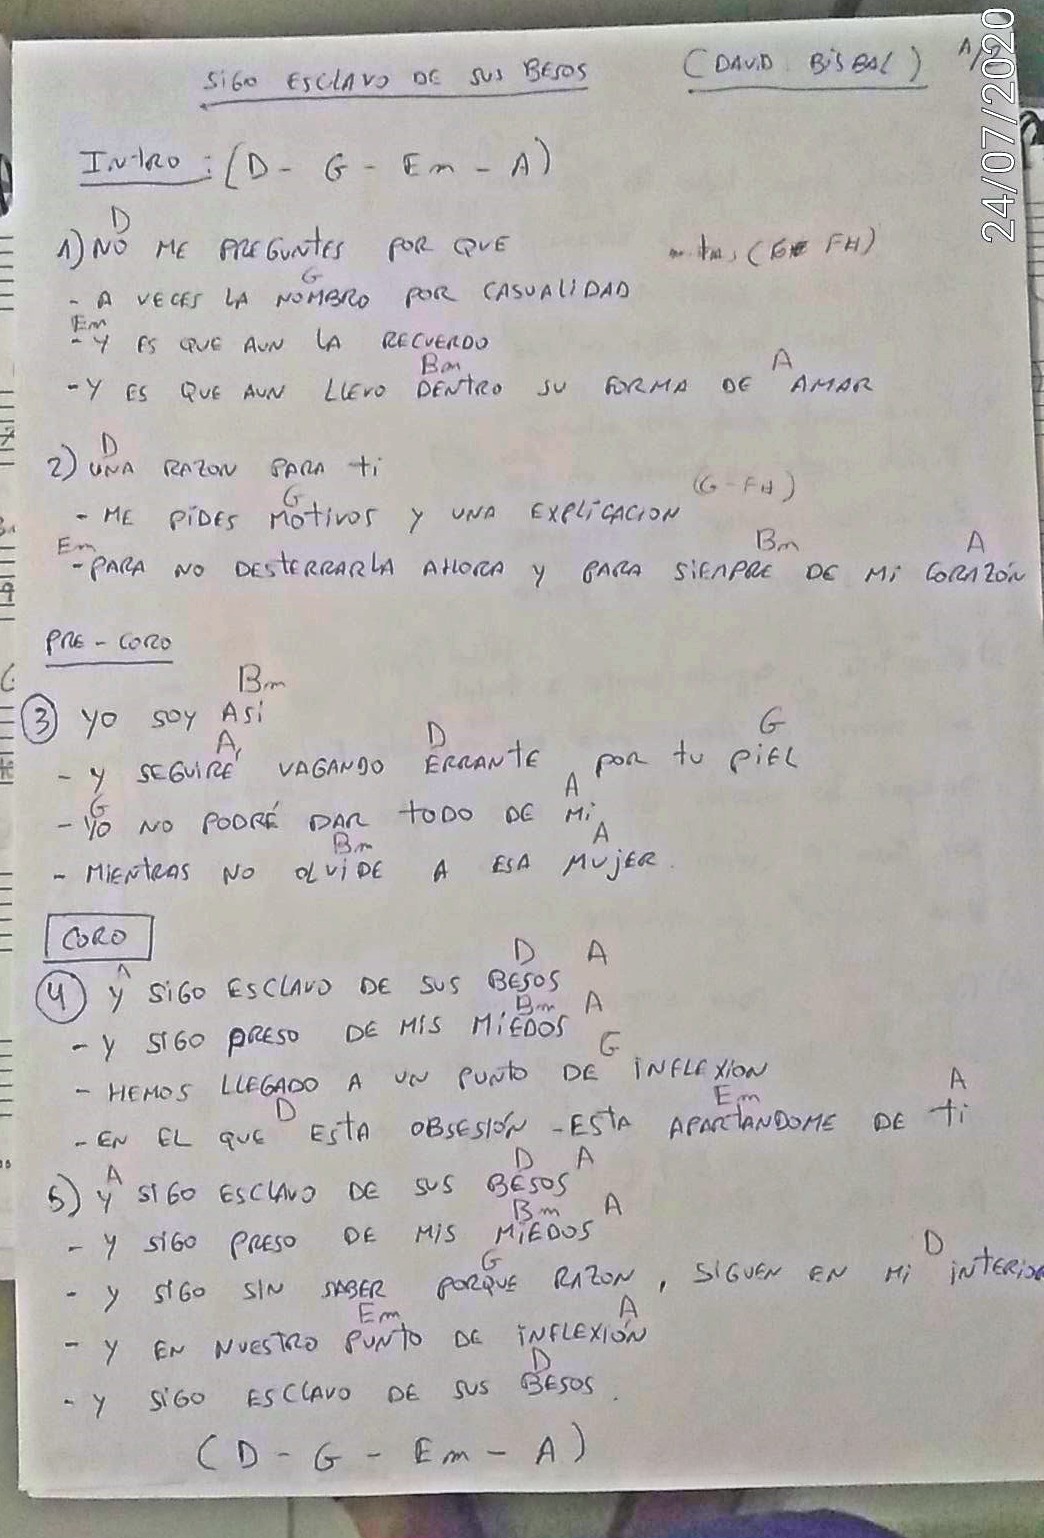 SIGO ESCLAVO DE SUS BESOS (DAVID BISBAL)
24/07/2020
INTRO : (D - G - Em - A)
D
1) NO ME PREGUNTES POR QUE
G
- A VECES LA NOMBRO POR CASUALIDAD
Em
- Y ES QUE AUN LA RECUERDO
Bm A
- Y ES QUE AUN LLEVO DENTRO SU FORMA DE AMAR
D
2) UNA RAZON PARA ti
G (G-F#)
- ME PIDES MOTIVOS Y UNA EXPLICACION
Em Bm A
- PARA NO DESTERRARLA AHORA Y PARA SIEMPRE DE Mi CORAZÓN
PRE - CORO
Bm
3 YO SOY ASí
A D G
- Y SEGUIRÉ VAGANDO ERRANTE POR tU PIEL
G A
- YO NO PODRÉ DAR TODO DE Mi
Bm A
- MIENTRAS NO OLVIDE A ESA MUJER.
CORO
A D A
4 Y SIGO ESCLAVO DE SUS BESOS
Bm A
- Y SIGO PRESO DE MIS MIEDOS
G
- HEMOS LLEGADO A UN PUNTO DE INFLEXION
D Em A
- EN EL QUE ESTA OBSESIÓN - ESTA APARTANDOME DE ti
A D A
5) Y SIGO ESCLAVO DE SUS BESOS
Bm A
- Y SIGO PRESO DE MIS MIEDOS
G D
- Y SIGO SIN SABER PORQUE RAZON, SIGUEN EN Mi
Em A
- Y EN NUESTRO PUNTO DE INFLEXIÓN
D
- Y SIGO ESCLAVO DE SUS BESOS.
(D - G - Em - A)